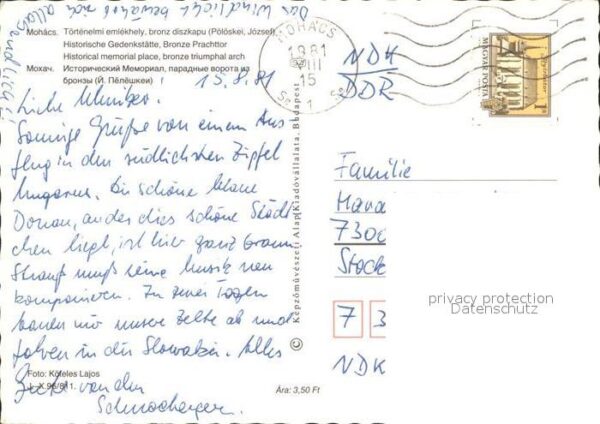 Das Windlicht bewährt sich
allabendlich!
Mohács. Történelmi emlékhely, bronz díszkapu (Pölöskei, József)
Historische Gedenkstätte, Bronze Prachttor
Historical memorial place, bronze triumphal arch
Мохач. Исторический Мемориал, парадные ворота из
бронзы (Й. Пёлёшкеи)
15.8.81
Liebe
Sonnige Grüße von einem Aus-
flug in den südlichsten Zipfel
Ungarns. Die schöne blaue
Donau, an der dies schöne Städt
chen liegt, ist hier ganz braun
Strauß muß seine Musik neu
komponieren. In zwei Tagen
bauen wir unsere Zelte ab und
fahren in die Slowakei. Alles
Gute von den
Foto: Köteles Lajos
Ára: 3,50 Ft
© Képzőművészeti Alap Kiadóvállalata, Budapest
MOHÁCS
1981
VIII
15
1
MAGYAR POSTA
1 Ft
NDK
DDR
Familie
Hara
7300
Stock
7 3
NDK
privacy protection
Datenschutz